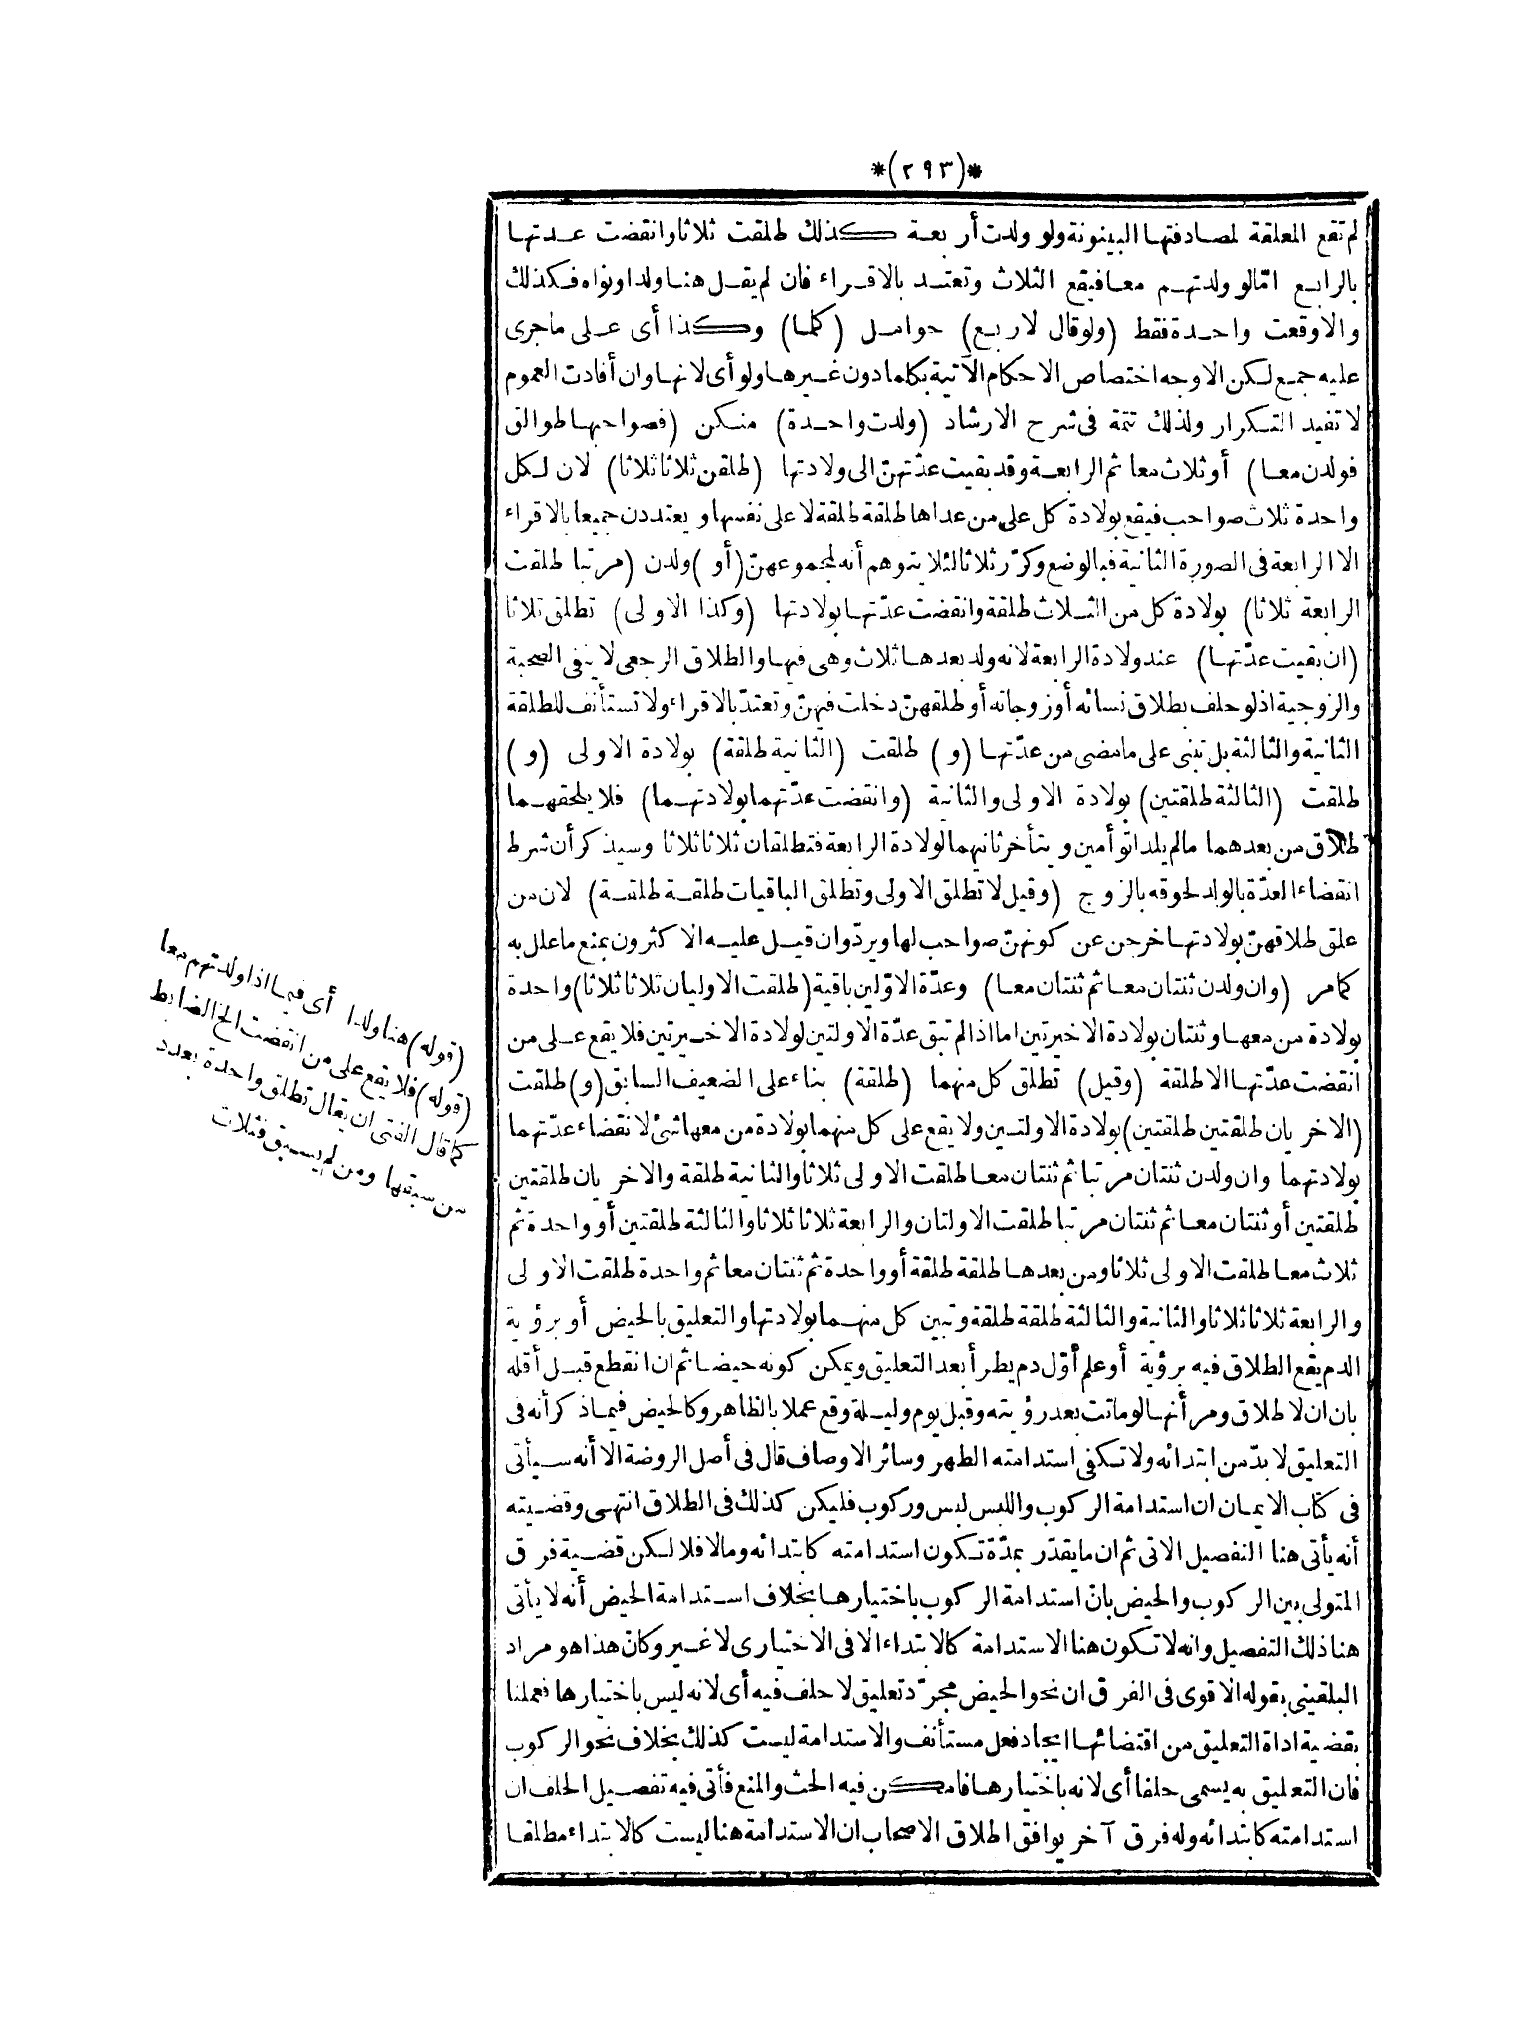 *(٢٩٣)*
لم تقع المعلقة لمصادفتها البينونة ولو ولدت أربعة كذلك طلقت ثلاثا وانقضت عدتها
بالرابع امّا لو ولدتهم معا فيقع الثلاث وتعتد بالاقراء فان لم يقل هنا ولدا ونواه فكذلك
والا وقعت واحدة فقط (ولو قال لاربع) حوامل (كلما) وكذا أى على ما جرى
عليه جمع لكن الاوجه اختصاص الاحكام الآتية بكلما دون غيرها ولو أى لانها وان أفادت العموم
لا تفيد التكرار ولذلك تتمة فى شرح الارشاد (ولدت واحدة) منكن (فصواحبها طوالق
فولدن معا) أو ثلاث معا ثم الرابعة وقد بقيت عدّتهنّ الى ولادتها (طلقن ثلاثا ثلاثا) لان لكل
واحدة ثلاث صواحب فيقع بولادة كل على من عداها طلقة طلقة لا على نفسها ويعتددن جميعا بالاقراء
الا الرابعة فى الصورة الثانية فبالوضع وكرّر ثلاثا لئلا يتوهم أنه لمجموعهنّ (أو) ولدن (مرتبا طلقت
الرابعة ثلاثا) بولادة كل من الثلاث طلقة وانقضت عدّتها بولادتها (وكذا الاولى) تطلق ثلاثا
(ان بقيت عدّتها) عند ولادة الرابعة لانه ولد بعدها ثلاث وهى فيها والطلاق الرجعى لا ينفى الصحبة
والزوجية اذ لو حلف بطلاق نسائه أو زوجاته أو طلقهنّ دخلت فيهنّ وتعتدّ بالاقراء ولا تستأنف للطلقة
الثانية والثالثة بل تبنى على ما مضى من عدّتها (و) طلقت (الثانية طلقة) بولادة الاولى (و)
طلقت (الثالثة طلقتين) بولادة الاولى والثانية (وانقضت عدّتهما بولادتهما) فلا يلحقهما
طلاق من بعدهما ما لم يلدا توأمين ويتأخر ثانيهما لولادة الرابعة فتطلقان ثلاثا ثلاثا وسيذكر أن شرط
انقضاء العدّة بالولد لحوقه بالزوج (وقيل لا تطلق الاولى وتطلق الباقيات طلقة طلقة) لان من
علق طلاقهنّ بولادتها خرجن عن كونهنّ صواحب لها ويردّ وان قيل عليه الاكثرون بمنع ما علل به
كما مر (وان ولدن ثنتان معا ثم ثنتان معا) وعدّة الاوّلين باقية (طلقت الاوليان ثلاثا ثلاثا) واحدة
بولادة من معها وثنتان بولادة الاخيرتين اما اذا لم تبق عدّة الاولتين لولادة الاخيرتين فلا يقع على من
انقضت عدّتها الا طلقة (وقيل) تطلق كل منهما (طلقة) بناء على الضعيف السابق (و) طلقت
(الاخريان طلقتين طلقتين) بولادة الاولتين ولا يقع على كل منهما بولادة من معها شئ لانقضاء عدّتهما
بولادتهما وان ولدن ثنتان مرتبا ثم ثنتان معا طلقت الاولى ثلاثا والثانية طلقة والاخريان طلقتين
طلقتين أو ثنتان معا ثم ثنتان مرتبا طلقت الاولتان والرابعة ثلاثا ثلاثا والثالثة طلقتين أو واحدة ثم
ثلاث معا طلقت الاولى ثلاثا ومن بعدها طلقة طلقة أو واحدة ثم ثنتان معا ثم واحدة طلقت الاولى
والرابعة ثلاثا ثلاثا والثانية والثالثة طلقة طلقة وتبين كل منهما بولادتها والتعليق بالحيض أو برؤية
الدم يقع الطلاق فيه برؤية أو علم أوّل دم يطرأ بعد التعليق ويمكن كونه حيضا ثم ان انقطع قبل أقله
بان ان لا طلاق ومر أنها لو ماتت بعد رؤيته وقبل يوم وليلة وقع عملا بالظاهر وكالحيض فيما ذكر أنه فى
التعليق لا بدّ من ابتدائه ولا تكفى استدامته الطهر وسائر الاوصاف قال فى أصل الروضة الا أنه سيأتى
فى كتاب الايمان ان استدامة الركوب واللبس لبس وركوب فليكن كذلك فى الطلاق انتهى وقضيته
أنه يأتى هنا التفصيل الاتى ثم ان ما يقدّر بمدّة تكون استدامته كابتدائه ومالا فلا لكن قضية فرق
المتولى بين الركوب والحيض بانّ استدامة الركوب باختيارها بخلاف استدامة الحيض أنه لا يأتى
هنا ذلك التفصيل وانه لا تكون هنا الاستدامة كالابتداء الا فى الاختيارى لا غير وكانّ هذا هو مراد
البلقينى بقوله الاقوى فى الفرق ان نحو الحيض مجرّد تعليق لا حلف فيه أى لانه ليس باختيارها فعملنا
بقضية اداة التعليق من اقتضائها ايجاد فعل مستأنف والاستدامة ليست كذلك بخلاف نحو الركوب
فان التعليق به يسمى حلفا أى لانه باختيارها فامكن فيه الحث والمنع فأتى فيه تفصيل الحلف ان
استدامته كابتدائه وله فرق آخر يوافق اطلاق الاصحاب ان الاستدامة هنا ليست كالابتداء مطلقا
(قوله) هنا ولدا أى فيما اذا ولدتهم معا
(قوله) فلا يقع على من انقضت الخ الضابط
كما قال الفتى ان يقال تطلق واحدة بعدد
من سبقها ومن لم يسبق فثلاث